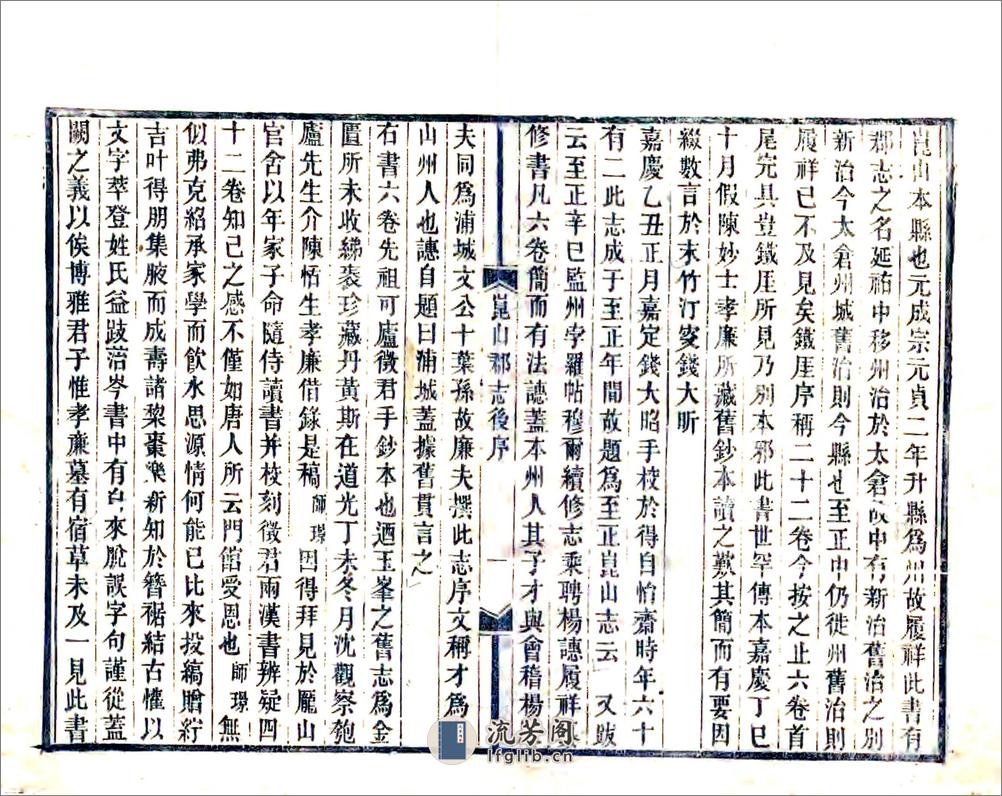 崑山本縣也元成宗元貞二年升縣為州故履祥此書有
郡志之名延祐中移州治於太倉故中有新治舊治之別
新治今太倉州城舊治則今縣也至正中仍徙州舊治則
履祥已不及見矣鐵厓序稱二十二卷今按之止六卷首
尾完具豈鐵厓所見乃別本邪此書世罕傳本嘉慶丁巳
十月假陳妙士孝廉所藏舊鈔本讀之歎其簡而有要因
綴數言於末竹汀錢大昕
嘉慶乙丑正月嘉定錢大昭手校於得自怡齋時年六十
有二此志成于至正年間故題為至正崑山志云 又跋
云至正辛巳監州孛羅帖穆爾續修志乘聘楊譓履祥
修書凡六卷簡而有法譓蓋本州人其子才與會稽楊
崑山郡志後序
一
夫同為浦城文公十葉孫故廉夫撰此志序文稱才為
山州人也譓自題曰浦城蓋據舊貫言之
右書六卷先祖可廬徵君手鈔本也迺玉峯之舊志為金
匱所未收綈袠珍藏丹黃斯在道光丁未冬月沈觀察匏
廬先生介陳恬生孝廉借錄是稿師璟因得拜見於麗山
官舍以年家子命隨侍讀書并校刻徵君兩漢書辨疑四
十二卷知己之感不僅如唐人所云門館受恩也師璟無
似弗克紹承家學而飲水思源情何能已比來投稿贈紵
吉叶得朋集腋而成壽諸棃棗樂新知於簪裾結古懽以
文字萃登姓氏益跂治岑書中有自來脫誤字句謹從蓋
闕之義以俟博雅君子惟孝廉墓有宿草未及一見此書
流芳阁
lfglib.cn